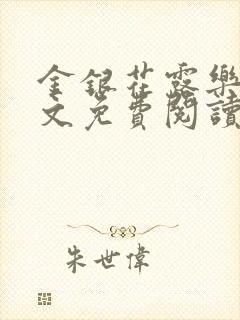 金銀花露樂
文免費閱讀
朱世偉